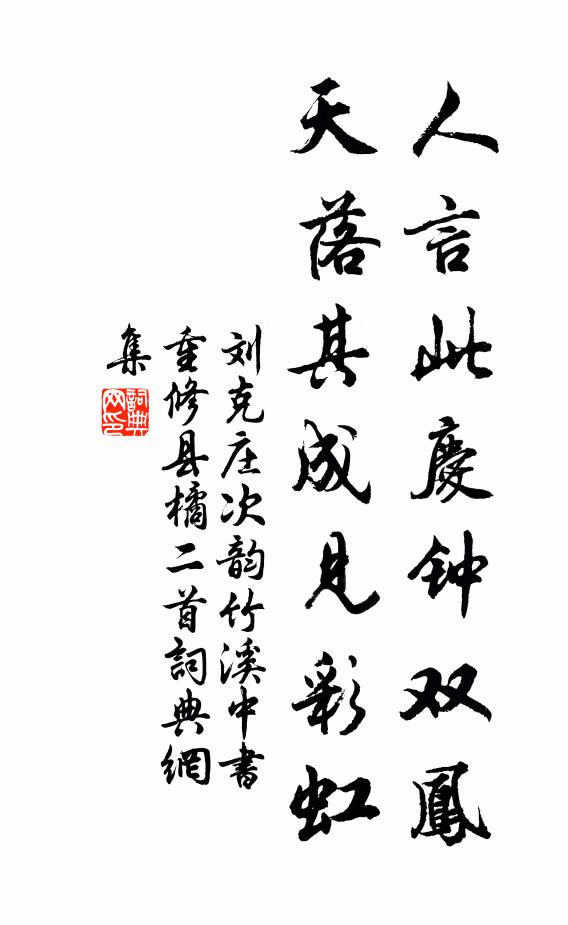 人言此慶钟双鳳
天落其成见彩虹
刘克庄次韵竹溪中書
重修县橘二首詞典網
集
詞典
网印